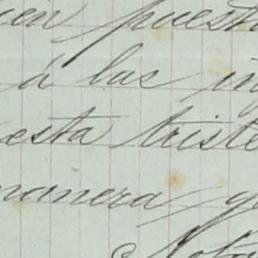 ien puest
á las in
esta triste
manera q
Nota